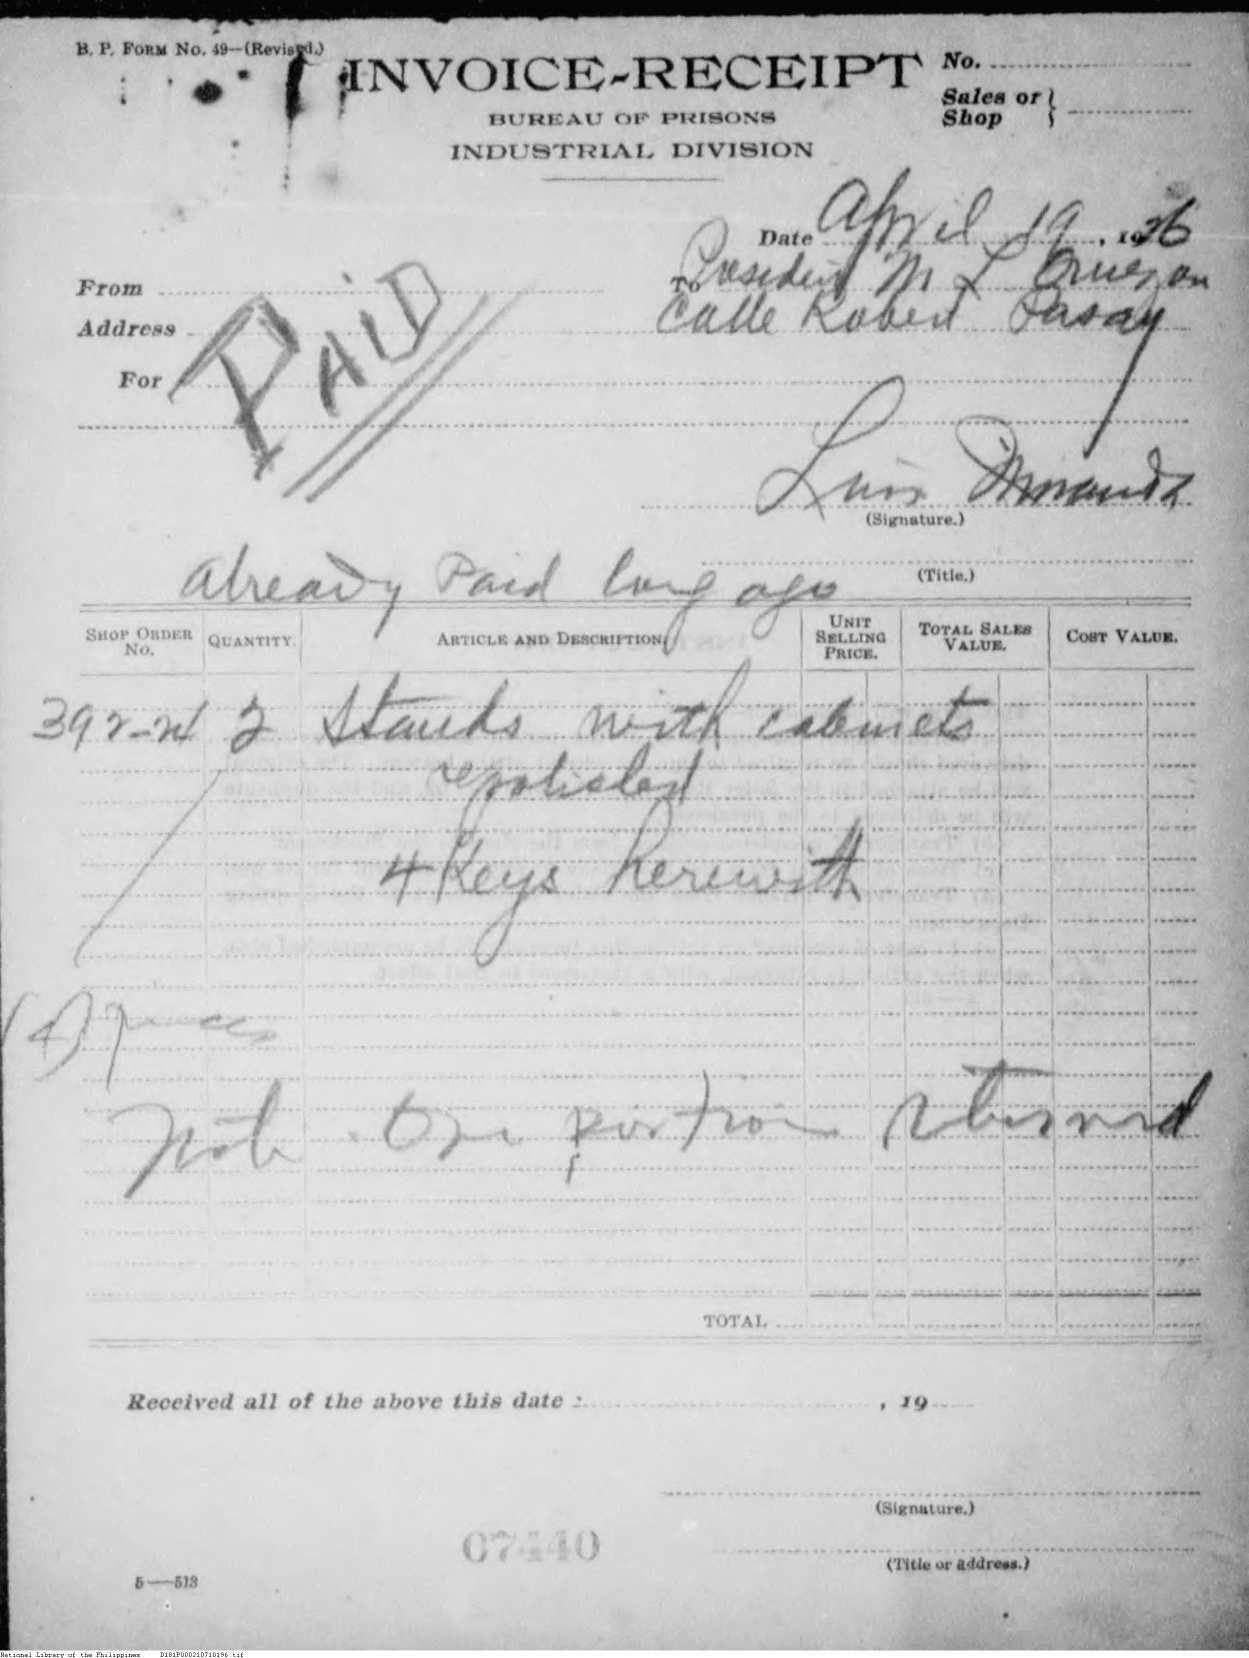 B. P. FORM No. 49—(Revised.)
INVOICE-RECEIPT
BUREAU OF PRISONS
INDUSTRIAL DIVISION
No.
Sales or
Shop
Date April 19, 1926
From
To President M L
Address
Calle Robert Pasay
For
PAID
Luis
(Signature.)
Already Paid long ago
(Title.)
SHOP ORDER No. QUANTITY. ARTICLE AND DESCRIPTION. UNIT SELLING PRICE. TOTAL SALES VALUE. COST VALUE.
392-24 2 Stands with cabinets
repolished
4 Keys herewith
(4)
Note One portion returned
TOTAL
Received all of the above this date: , 19
(Signature.)
07440
(Title or address.)
5—513
National Library of the Philippines D181P000210710196.tif